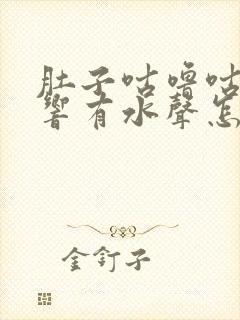 肚子咕嚕咕
響有水聲怎
金釘子